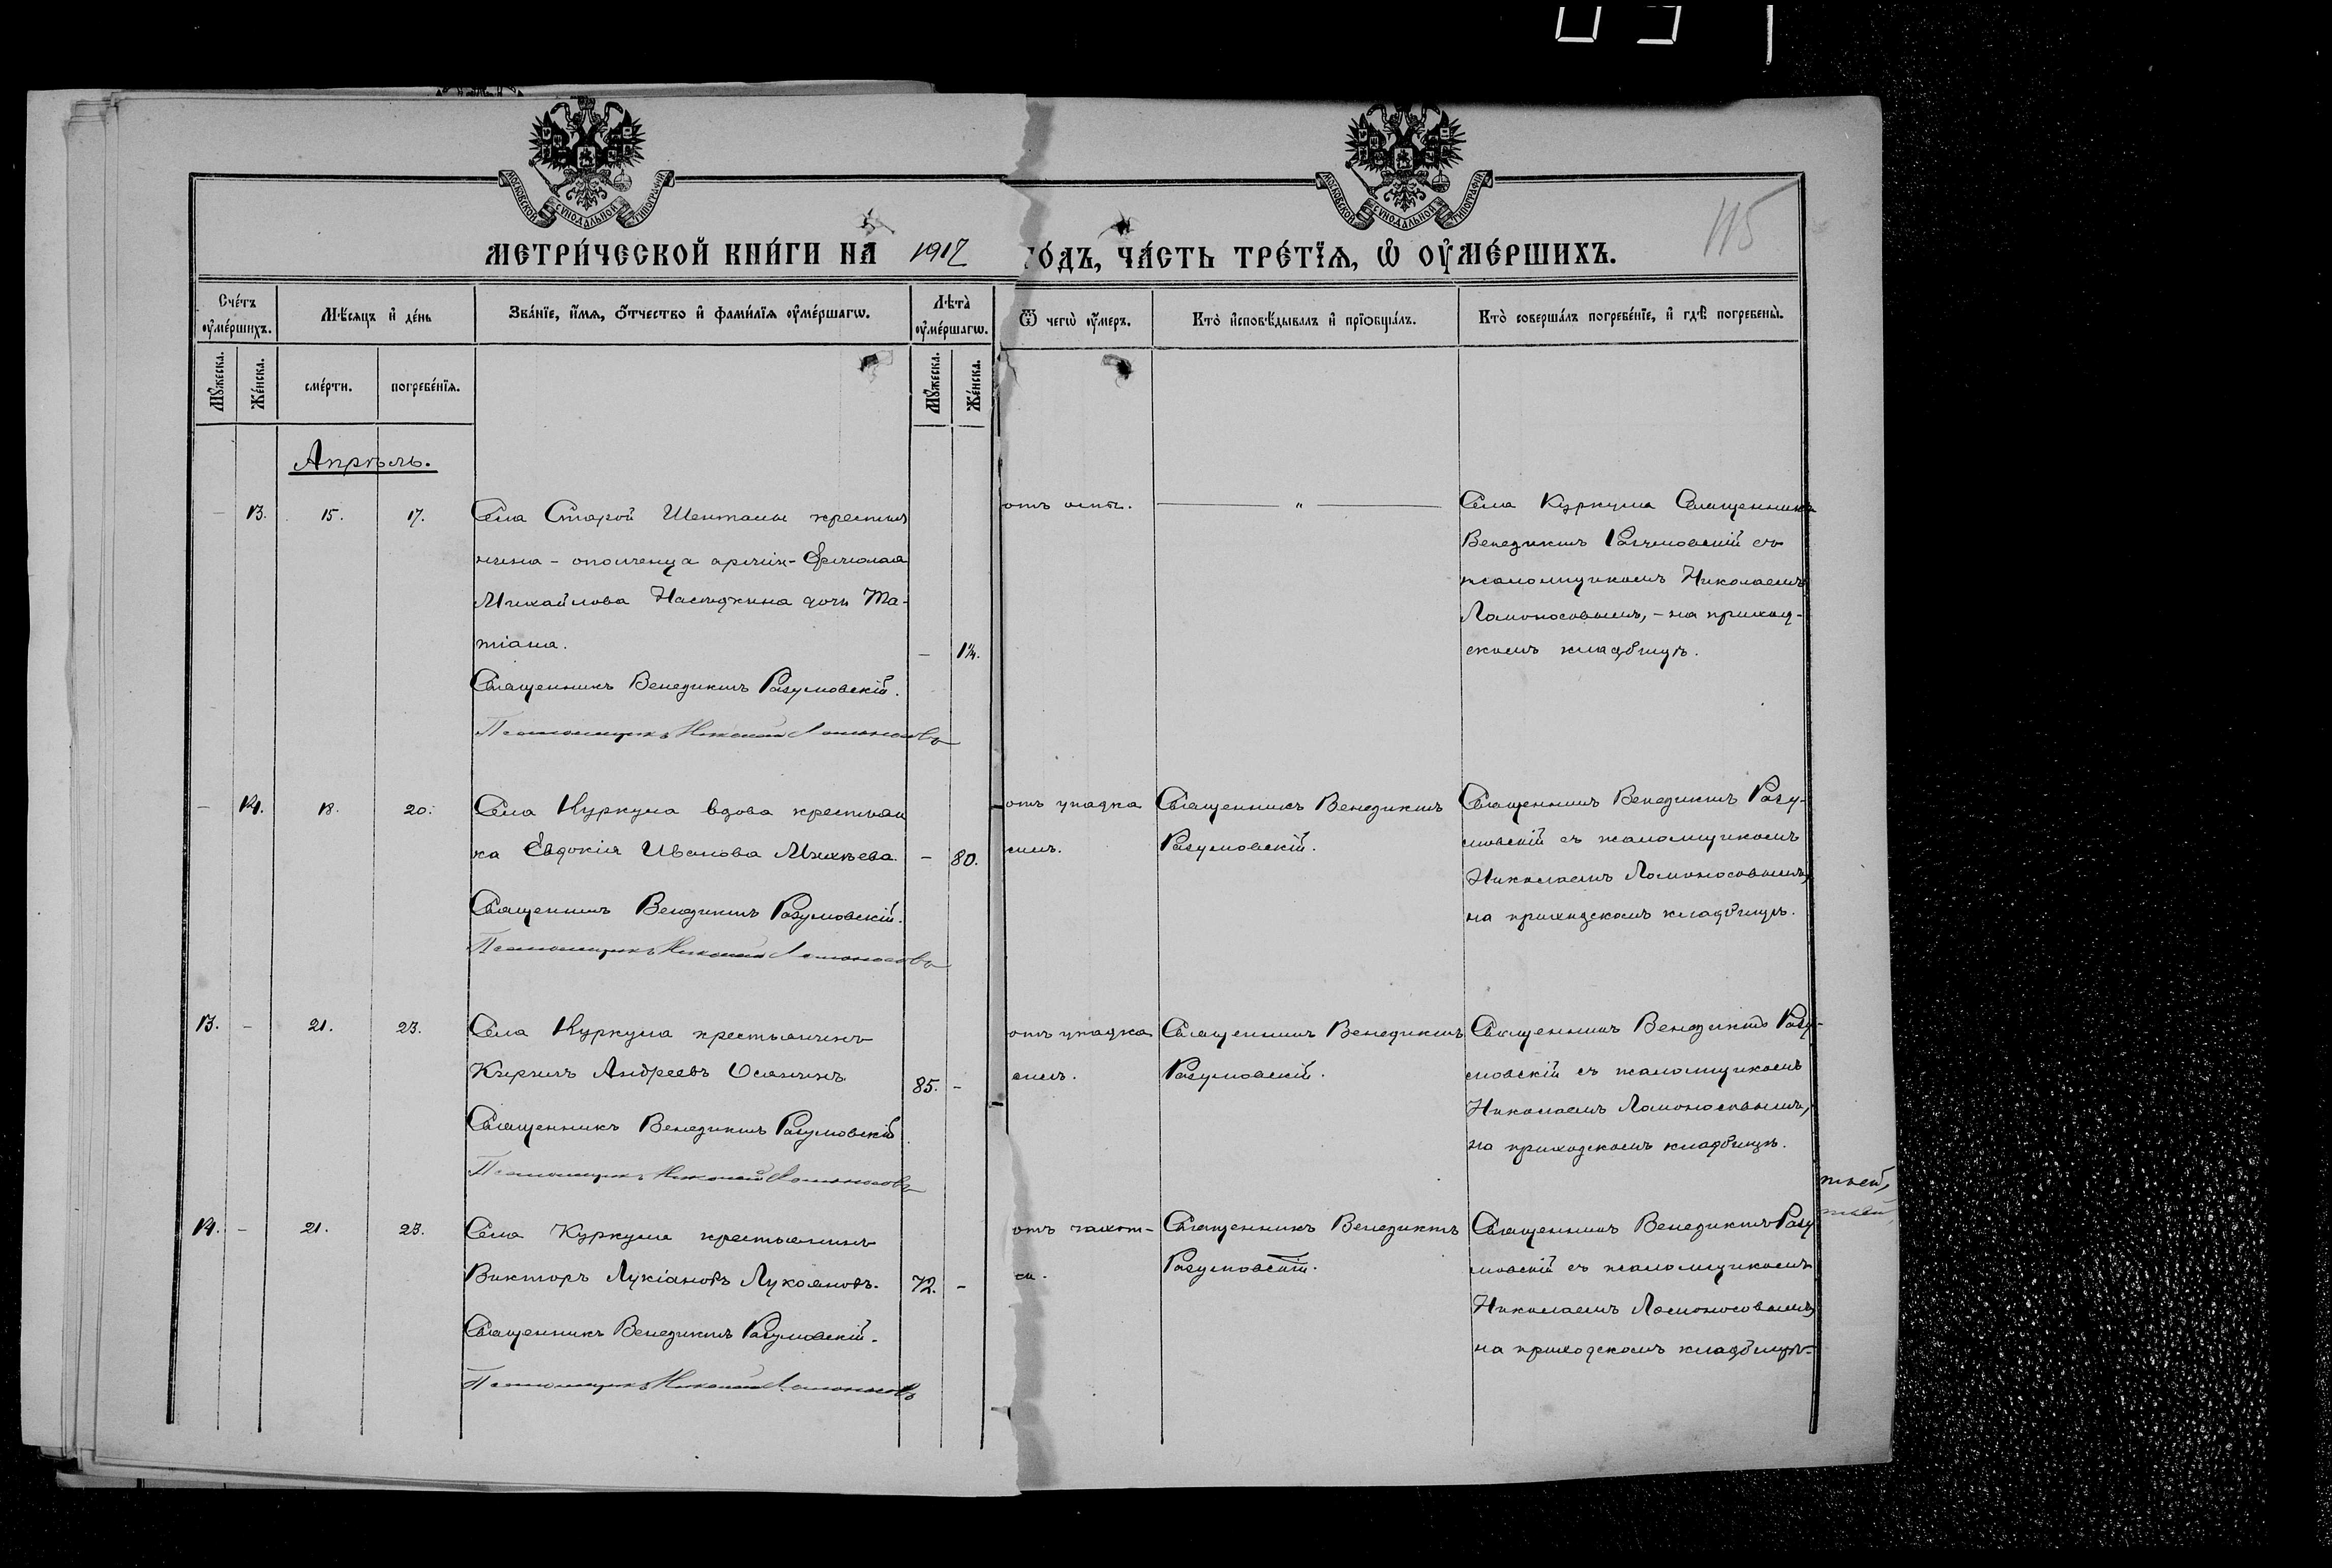 МОСКОВСКОЙ СѴНОДАЛЬНОЙ ТИПОГРАФІИ
МОСКОВСКОЙ СѴНОДАЛЬНОЙ ТИПОГРАФІИ
115
МЕТРИ́ЧЕСКОЙ КНИ́ГИ НА 1917 ГО́ДЪ, ЧА́СТЬ ТРЕ́ТЇѦ, Ѡ҆ ОУ҆МЕ́РШИХЪ.
Сче́тъ оу҆ме́ршихъ.
Мѣ́сяцъ и҆ де́нь
Зва́нїе, и҆́мѧ, ѻ҆́тчество и҆ фами́лїѧ оу҆ме́ршагѡ.
Лѣ́та оу҆ме́ршагѡ.
Ѿ чегѡ̀ оу҆́меръ.
Кто̀ и҆сповѣ́дывалъ и҆ прїѻбща́лъ.
Кто̀ соверша́лъ погребе́нїе, и҆ гдѣ̀ погребены̀.
Мꙋ́жеска.
Же́нска.
сме́рти.
погребе́нїѧ.
Мꙋ́жеска.
Же́нска.
Апрѣль.
— 13. 15. 17. Села Старой Шенталы крестья
нина - ополченца
Михайлова дочь Та-
тіана. — 1¼.
Священникъ Венедиктъ Разумовскій.
Псаломщикъ Николай Ломоносовъ
отъ оспы. — " —
Села Куркуля Священникъ
Венедиктъ Разумовскій съ
псаломщикомъ Николаемъ
Ломоносовымъ, - на приход-
скомъ кладбищѣ.
— 14. 18. 20. Села Куркуля вдова крестьян
ка Евдокія Иванова Михѣева. — 80.
Священникъ Венедиктъ Разумовскій.
Псаломщикъ Николай Ломоносовъ
отъ упадка
силъ.
Священникъ Венедиктъ
Разумовскій.
Священникъ Венедиктъ Разу-
мовскій съ псаломщикомъ
Николаемъ Ломоносовымъ,
на приходскомъ кладбищѣ.
13. - 21. 23. Села Куркуля крестьянинъ
Кирилъ Андреевъ Осянинъ. 85. -
Священникъ Венедиктъ Разумовскій.
Псаломщикъ Николай Ломоносовъ
отъ упадка
силъ.
Священникъ Венедиктъ
Разумовскій.
Священникъ Венедиктъ Разу-
мовскій съ псаломщикомъ
Николаемъ Ломоносовымъ,
на приходскомъ кладбищѣ.
14. - 21. 23. Села Куркуля крестьянинъ
Викторъ Лукіановъ Лукояновъ. 72. -
Священникъ Венедиктъ Разумовскій.
Псаломщикъ Николай Ломоносовъ
отъ чахот-
ки.
Священникъ Венедиктъ
Разумовскій.
Священникъ Венедиктъ Разу
мовскій съ псаломщикомъ
Николаемъ Ломоносовымъ,
на приходскомъ кладбищѣ.